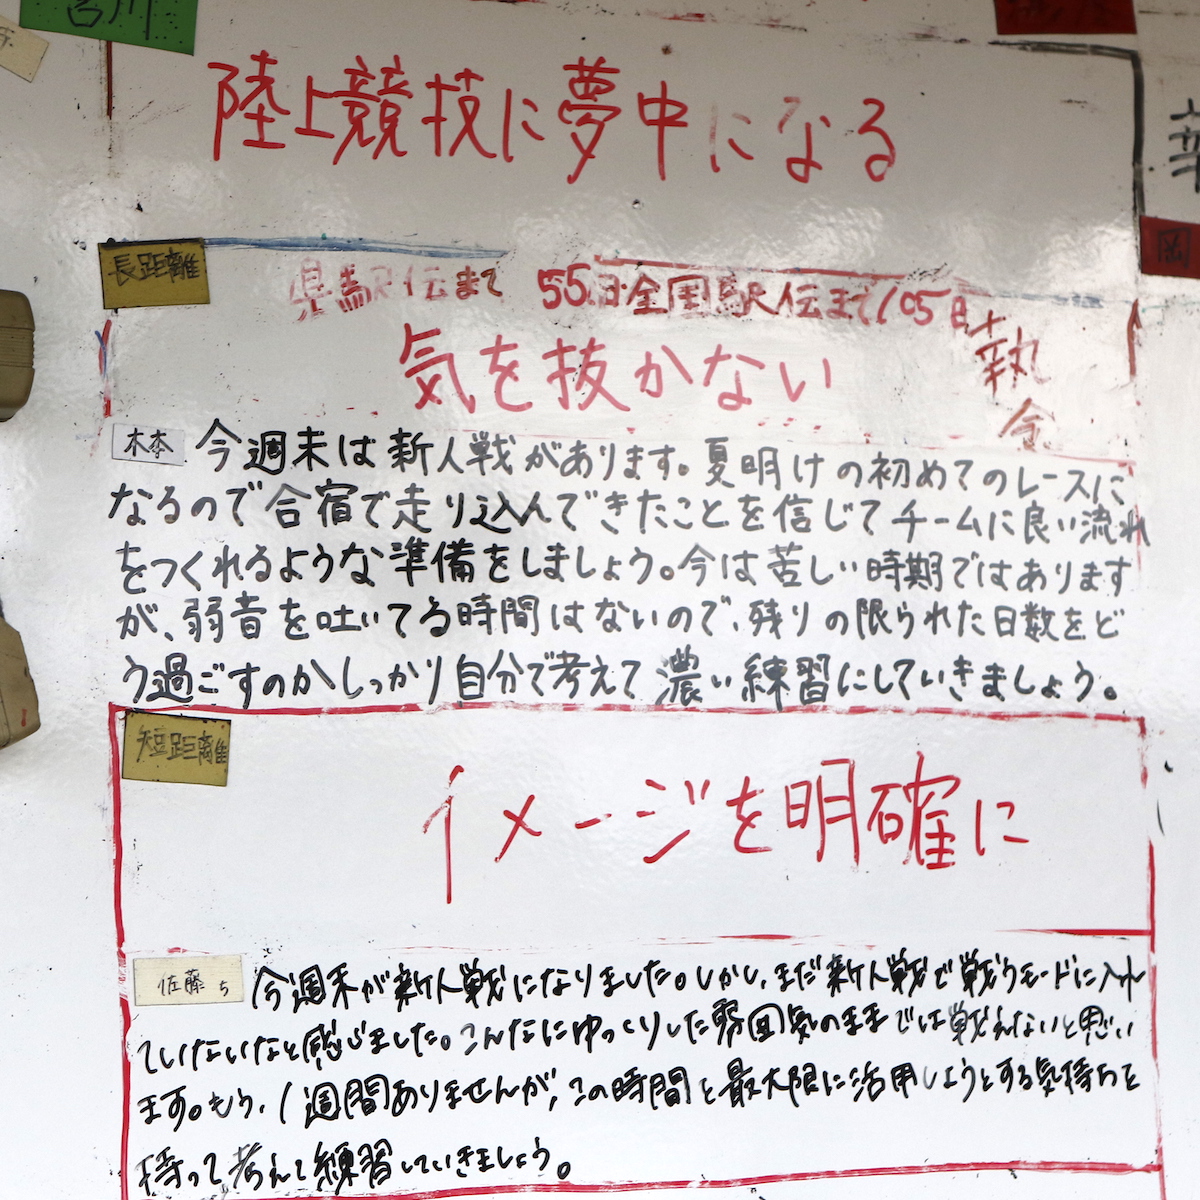 宮川
陸上競技に夢中になる
長距離
県駅伝まで 55日 全国駅伝まで105日
気を抜かない
木本 今週末は新人戦があります。夏明けの初めてのレースに
なるので合宿で走り込んできたことを信じてチームに良い流れ
をつくれるような準備をしましょう。今は苦しい時期ではあります
が、弱音を吐いてる時間はないので、残りの限られた日数をど
う過ごすのかしっかり自分で考えて濃い練習にしていきましょう。
短距離
イメージを明確に
佐藤ち 今週末が新人戦になりました。しかし、まだ新人戦で戦うモードに入れ
ていないなと感じました。こんなにゆっくりした雰囲気のままでは戦えないと思い
ます。もう、1週間ありませんが、この時間を最大限に活用しようとする気持ちを
持って考えて練習していきましょう。